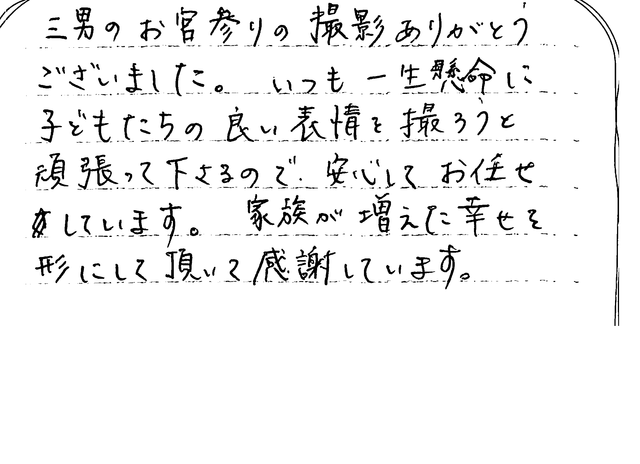 三男のお宮参りの撮影ありがとう
ございました。 いつも一生懸命に
子どもたちの良い表情を撮ろうと
頑張って下さるので、安心してお任せ
しています。 家族が増えた幸せを
形にして頂いて感謝しています。